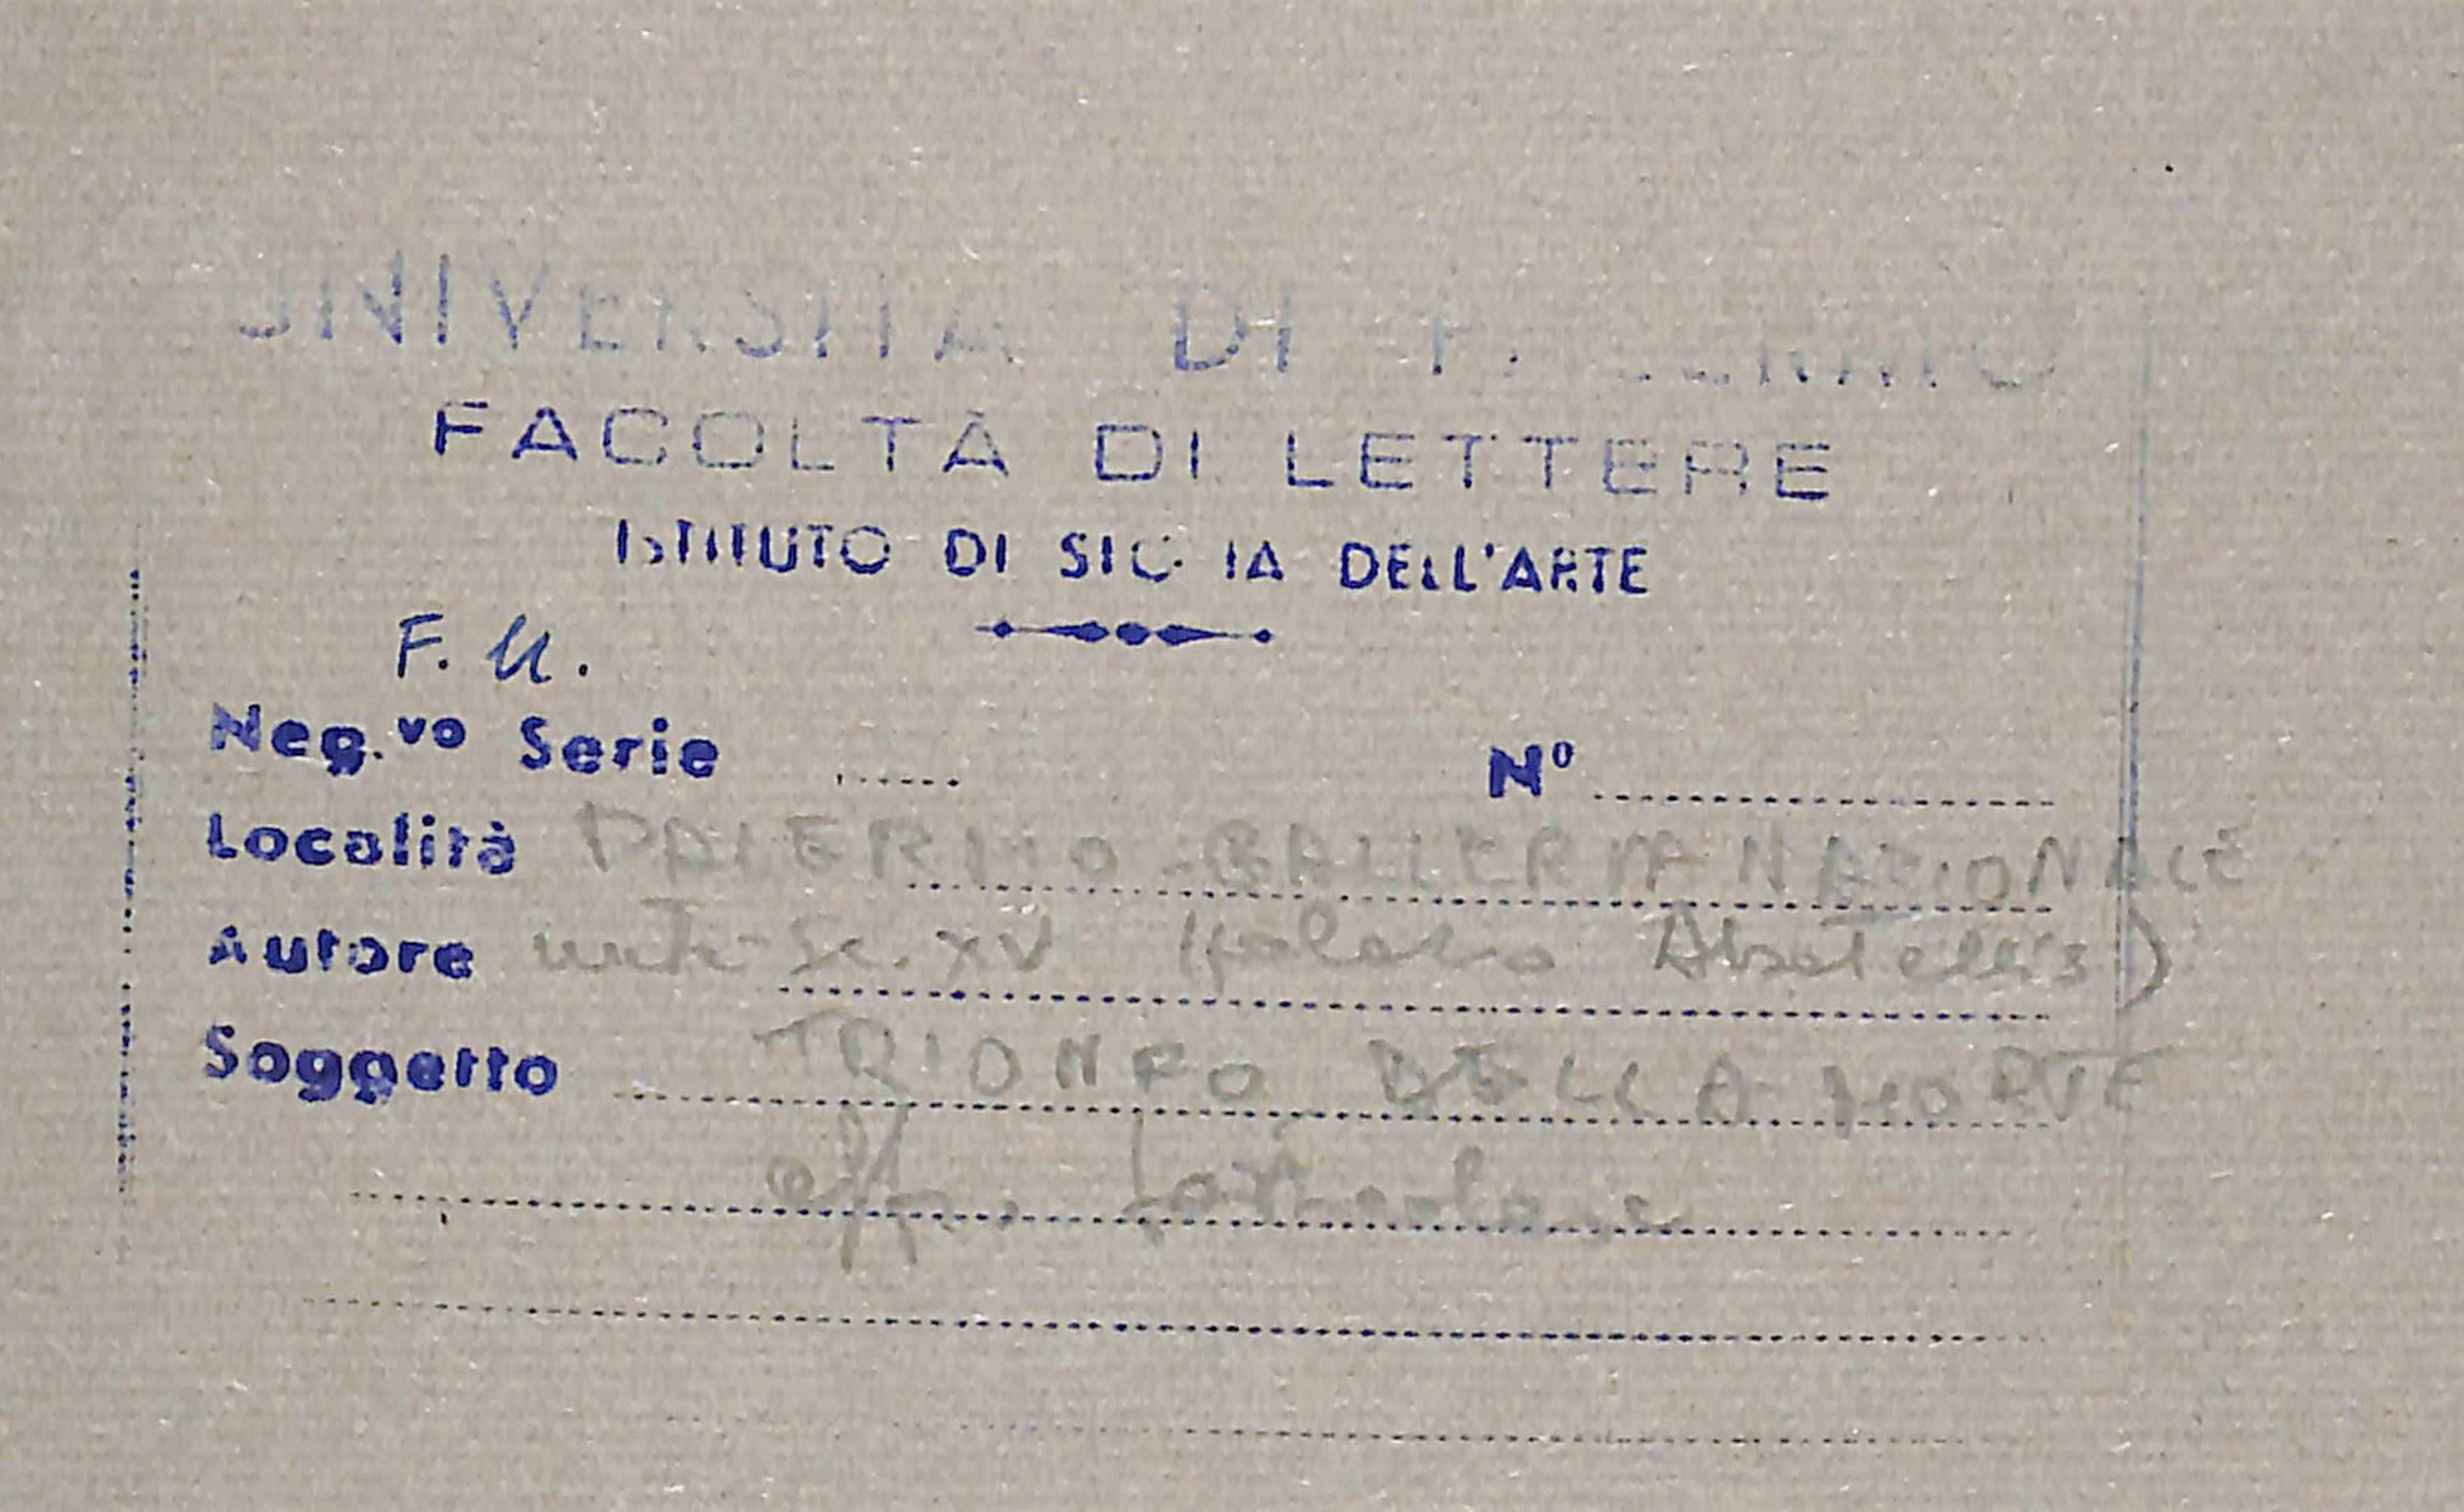 UNIVERSITA DI PALERMO
FACOLTÀ DI LETTERE
ISTITUTO DI STORIA DELL'ARTE
F. U.
Neg.vo Serie ..... Nº ..........
Località PALERMO - GALLERIA NAZIONALE
Autore Sc. XV (palazzo Abatellis)
Soggetto TRIONFO DELLA MORTE